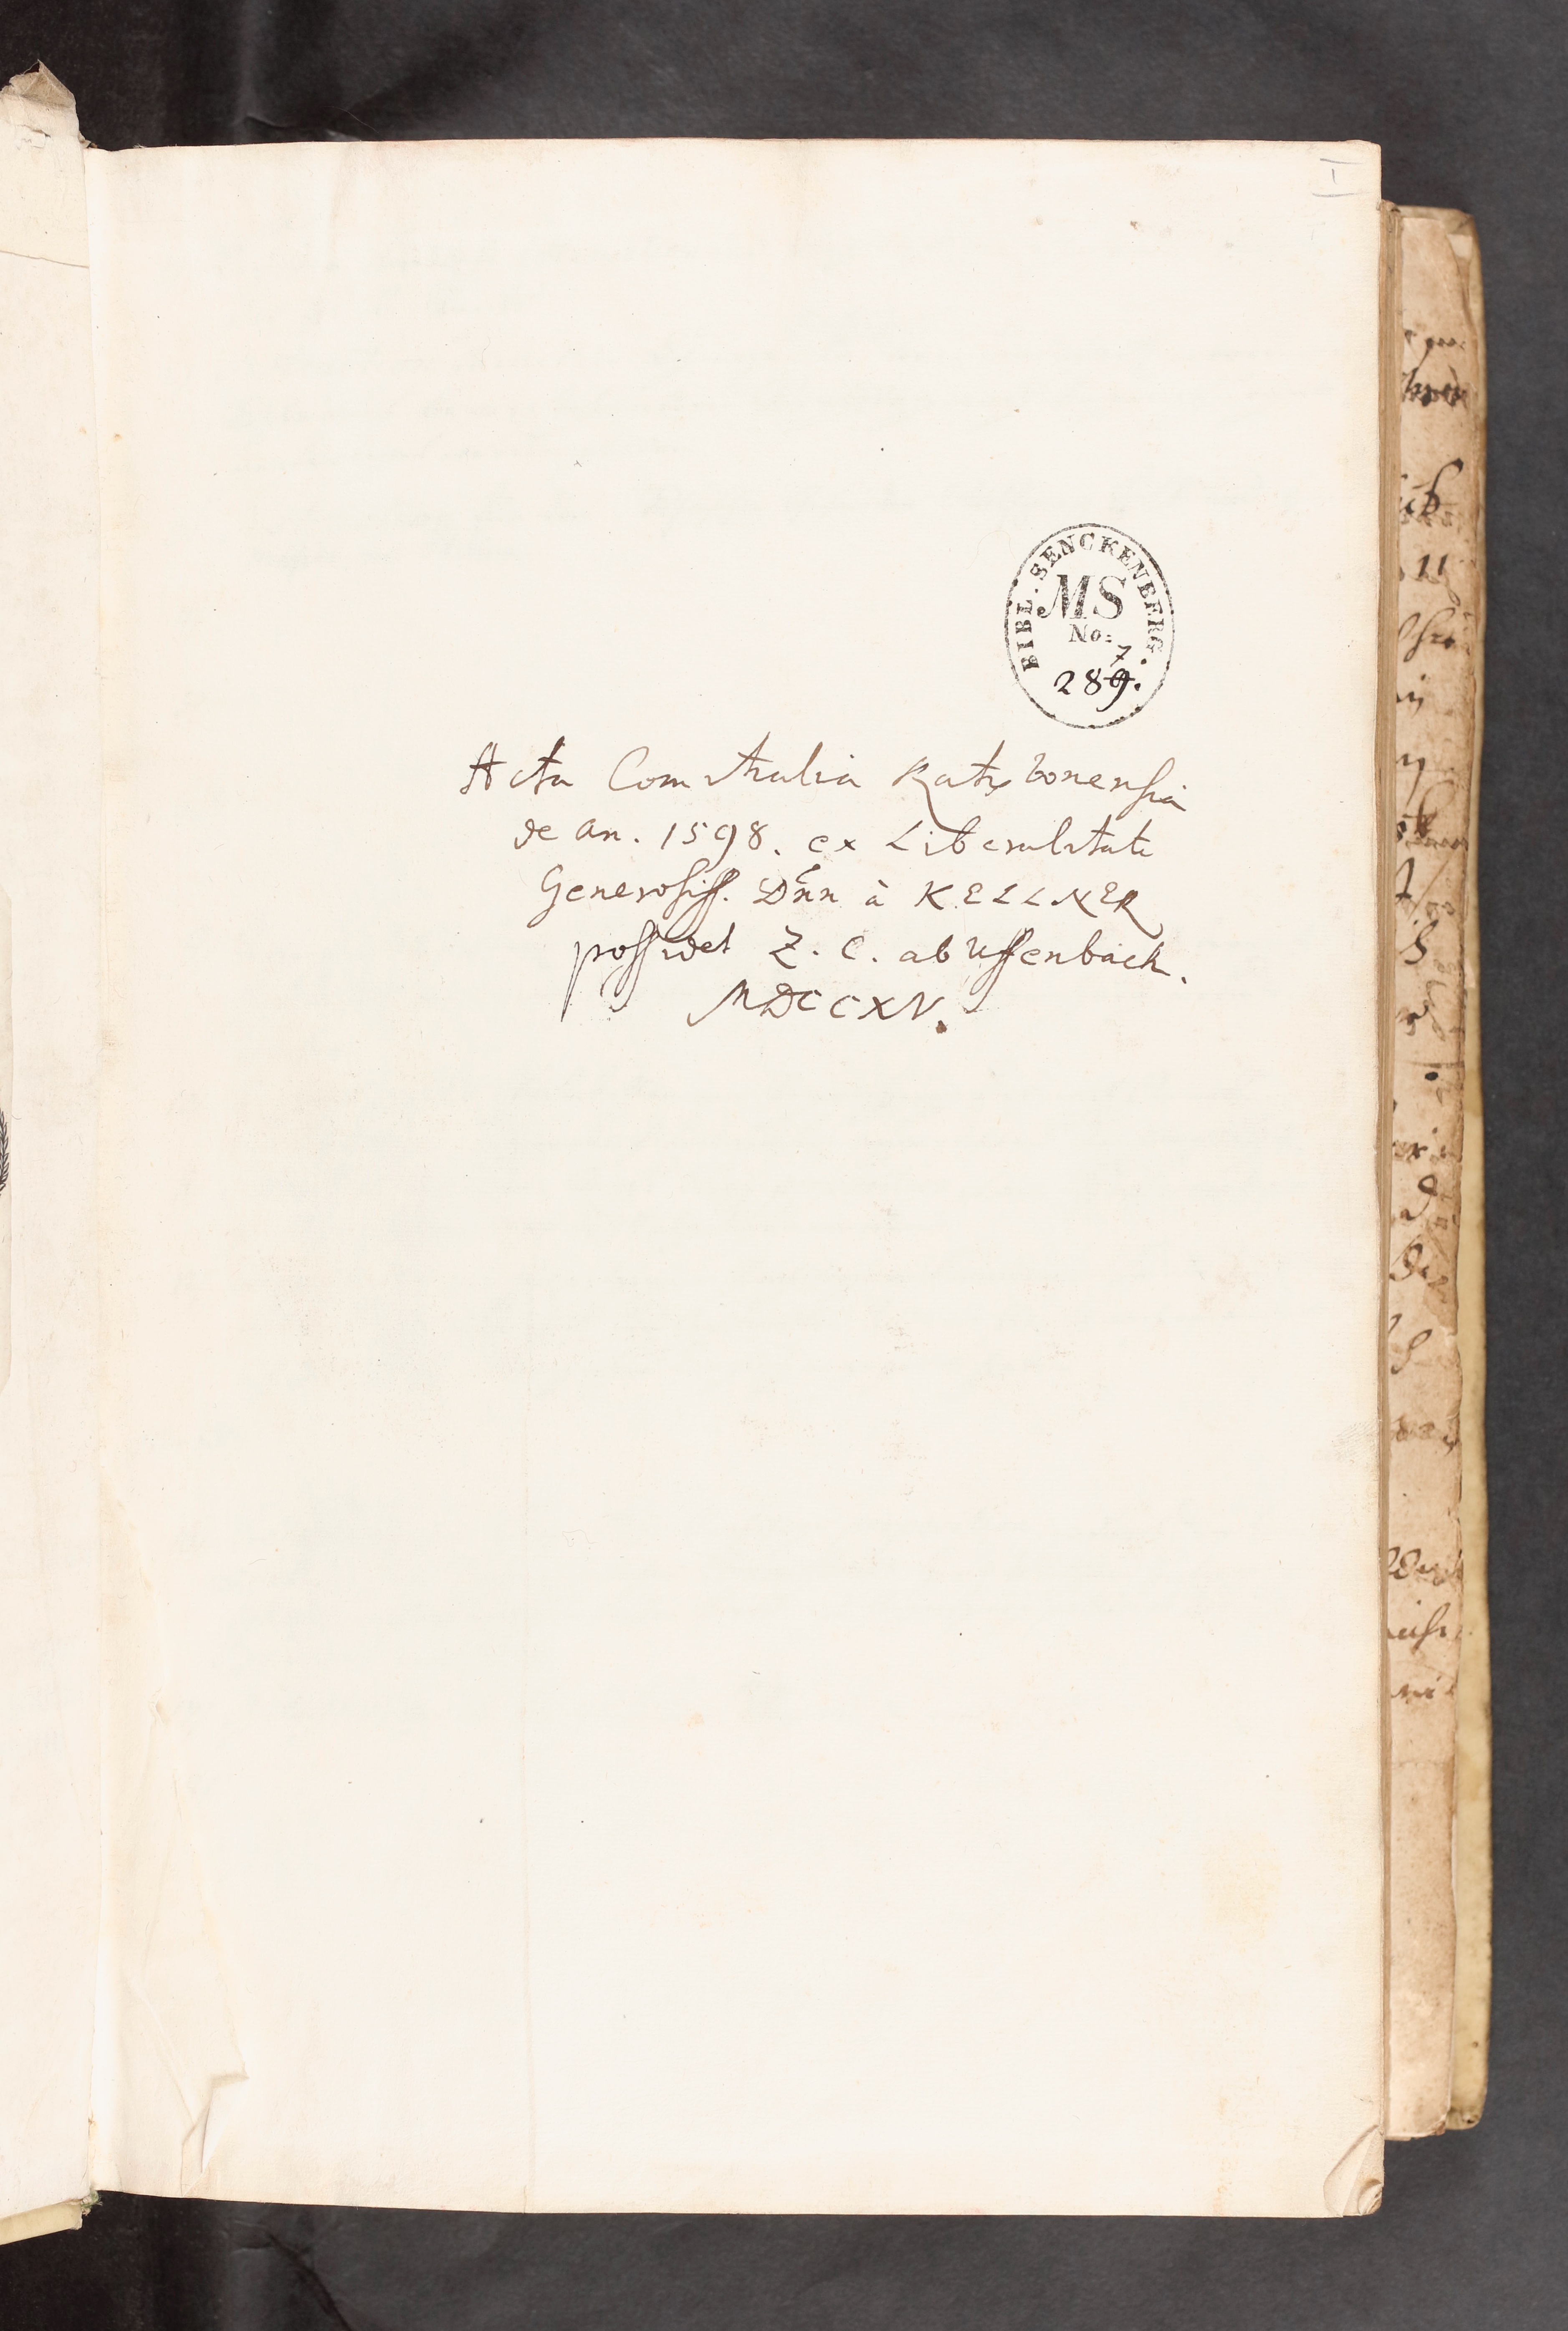 I
BIBL. SENCKENBERG.
MS
No:
7
289.
Acta Comitialia Ratisbonensia
de an. 1598. ex Liberalitate
Generosiss. Dnn à KELLNER
possidet Z. C. ab Uffenbach.
MDCCXV.